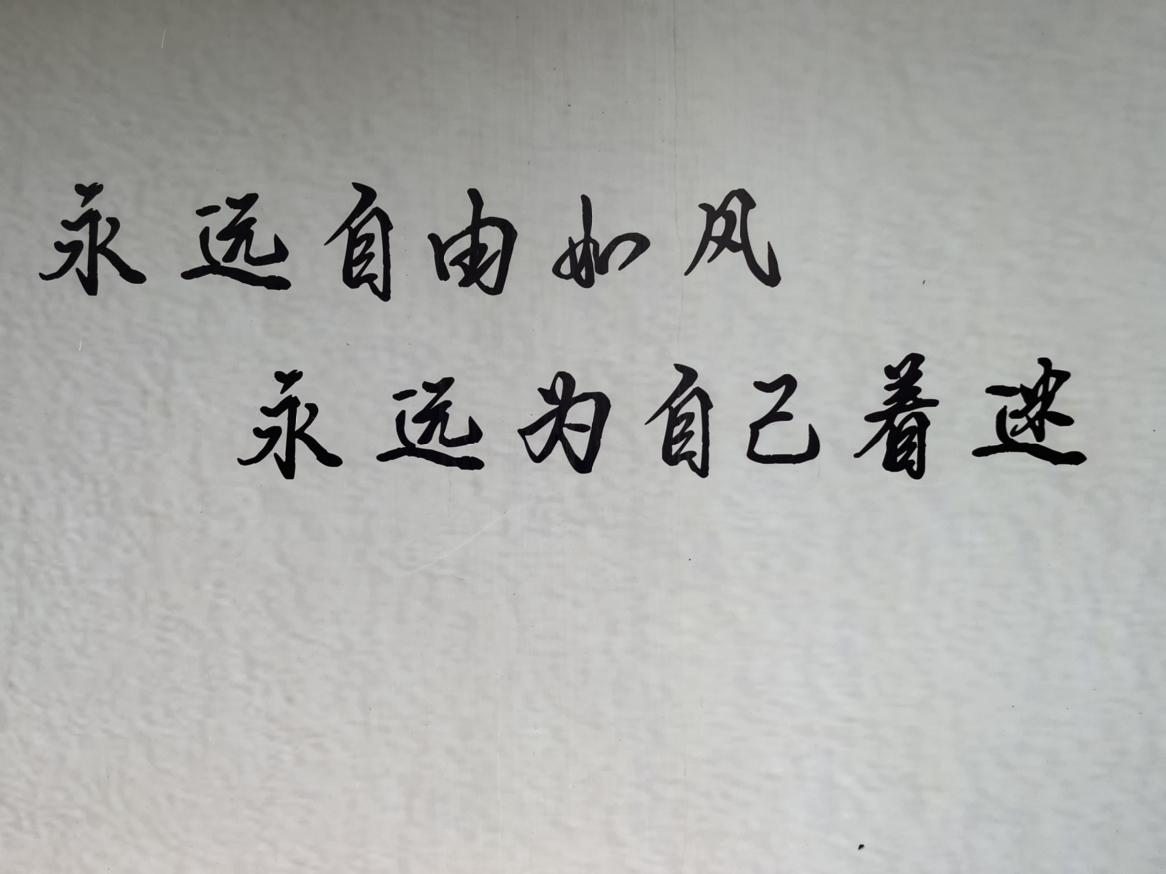 永远自由如风
永远为自己着迷